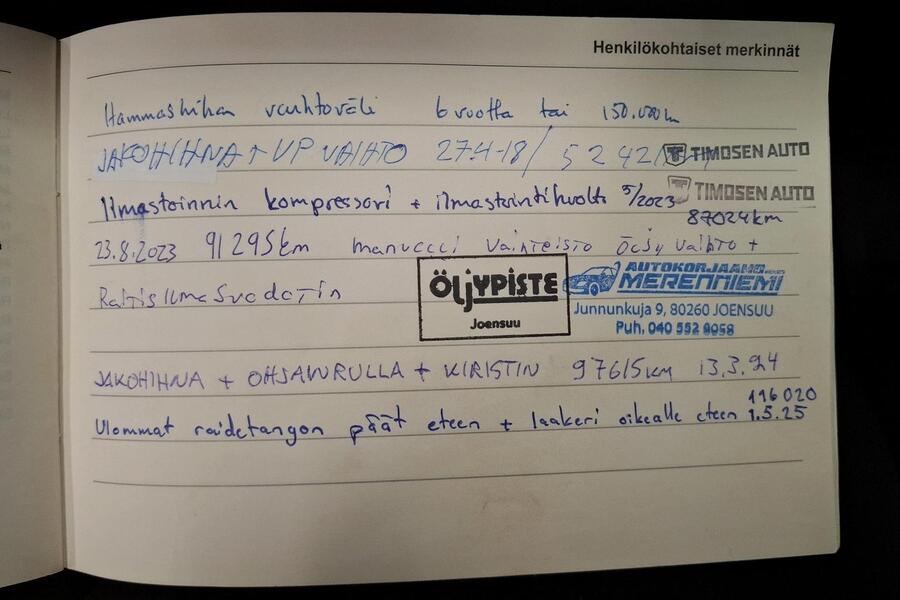 Henkilökohtaiset merkinnät
Hammashihan vauhtoväli 6 vuotta tai 150.000km
JAKOHIHNA + VP VAIHTO 27.4-18/ 5242
TIMOSEN AUTO
Ilmastoinnin kompressori + ilmastointihuolto 5/2023
TIMOSEN AUTO
87024km
23.8.2023 91295km manuelli vaihteisto öljy vaihto +
Raitisilmasuodatin
ÖLJYPISTE
Joensuu
AUTOKORJAAMO
MERENNIEMI
Junnunkuja 9, 80260 JOENSUU
Puh. 040 552 8058
JAKOHIHNA + OHJAURULLA + KIRISTIN 97615KM 13.3.24
116020
Ulommat raidetangon päät eteen + laakeri oikealle eteen 1.5.25